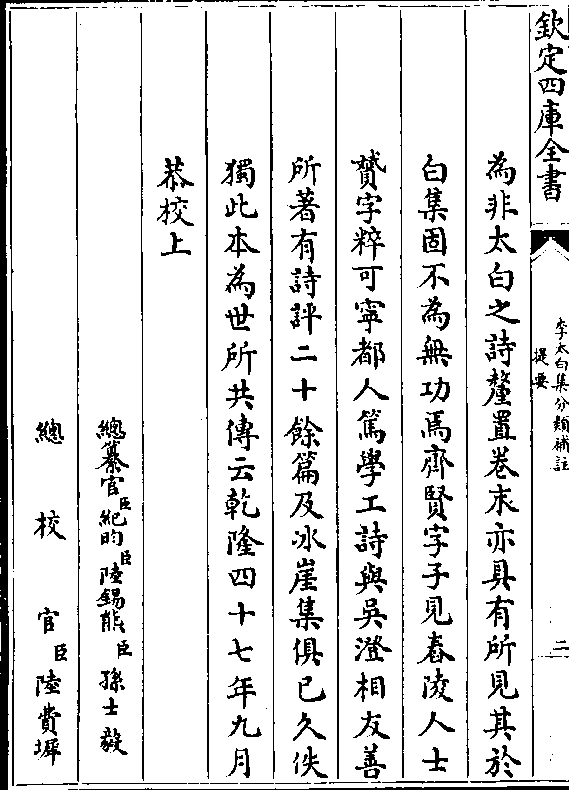 欽定四庫全書
李太白集分類補註
提要
二
為非太白之詩釐置卷末亦具有所見其於
白集固不為無功焉齊賢字子見舂陵人士
贇字粹可寧都人篤學工詩與吳澄相友善
所著有詩評二十餘篇及冰崖集俱已久佚
獨此本為世所共傳云乾隆四十七年九月
恭校上
總纂官臣紀昀臣陸錫熊臣孫士毅
總校官臣陸費墀